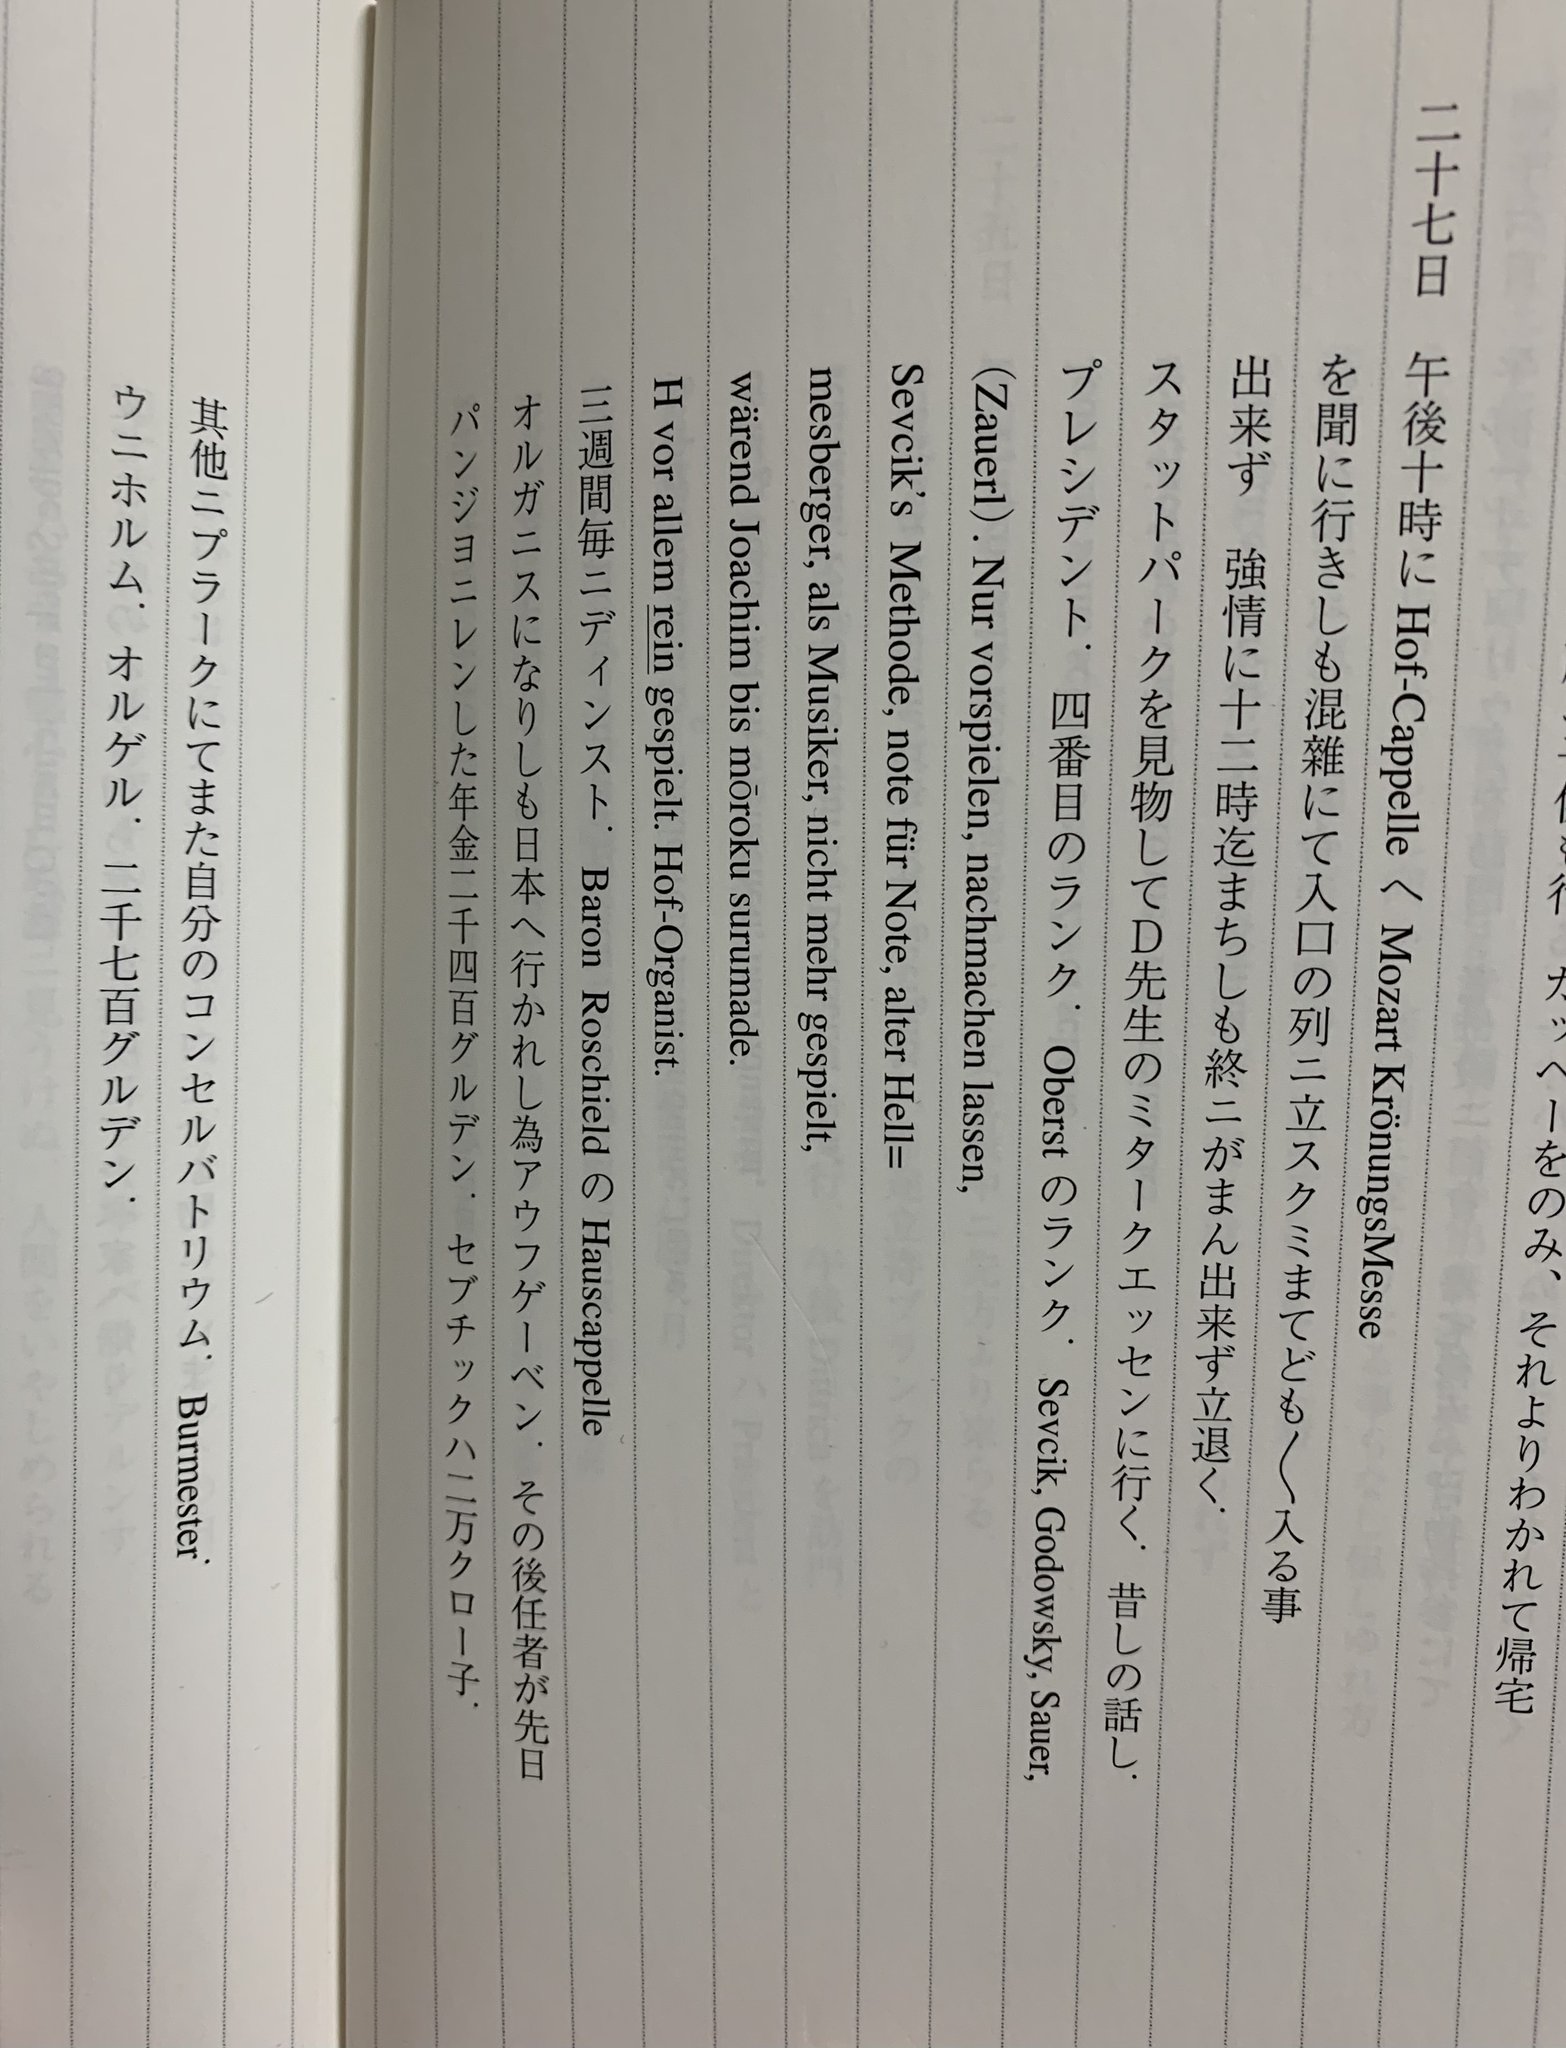 カッヘーをのみ、それよりわかれて帰宅
二十七日　午後十時に Hof-Cappelle へ Mozart KrönungsMesse
を聞に行きしも混雑にて入口の列ニ立スクミまてども〱入る事
出来ず　強情に十二時迄まちしも終ニがまん出来ず立退く.
スタットパークを見物してD先生のミタークエッセンに行く.　昔しの話し.
プレシデント.　四番目のランク.　Oberst のランク.　Sevcik, Godowsky, Sauer,
(Zauerl). Nur vorspielen, nachmachen lassen,
Sevcik's Methode, note für Note, alter Hell=
mesberger, als Musiker, nicht mehr gespielt,
wärend Joachim bis mōroku surumade.
H vor allem rein gespielt. Hof-Organist.
三週間毎ニディンスト.　Baron Roschield の Hauscappelle
オルガニスになりしも日本へ行かれし為アウフゲーベン.　その後任者が先日
パンジヨニレンした年金二千四百グルデン.　セブチックハ二万クローネ.
其他ニプラークにてまた自分のコンセルバトリウム.　Burmester.
ウニホルム.　オルゲル.　二千七百グルデン.